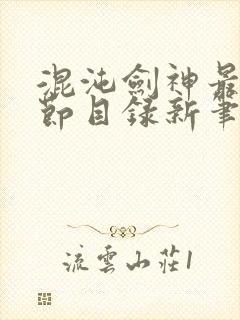 混沌劍神最
節目録新筆
流雲山莊1